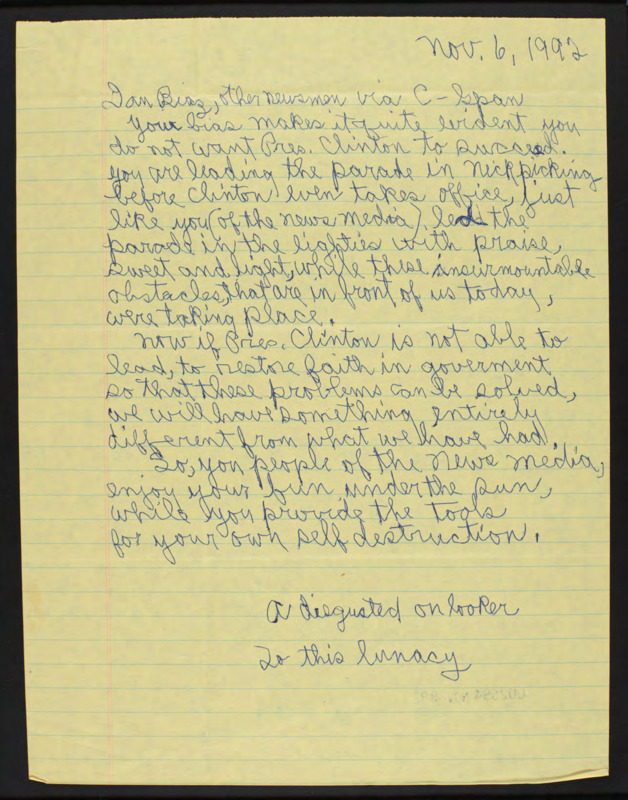 Nov. 6, 1992
Dan Birz, other newsmen via C-Span
Your bias makes it quite evident you
do not want Pres. Clinton to succeed.
you are leading the parade in nickpicking
before Clinton even takes office, just
like you (of the news media) led the
parade in the eighties with praise,
sweet and light, while these insurmountable
obstacles, that are in front of us today,
were taking place.
Now if Pres. Clinton is not able to
lead, to restore faith in goverment
so that these problems can be solved,
we will have something entirely
different from what we have had.
So, you people of the News media,
enjoy your fun under the sun,
while you provide the tools
for your own self destruction.
A disgusted onlooker
To this lunacy